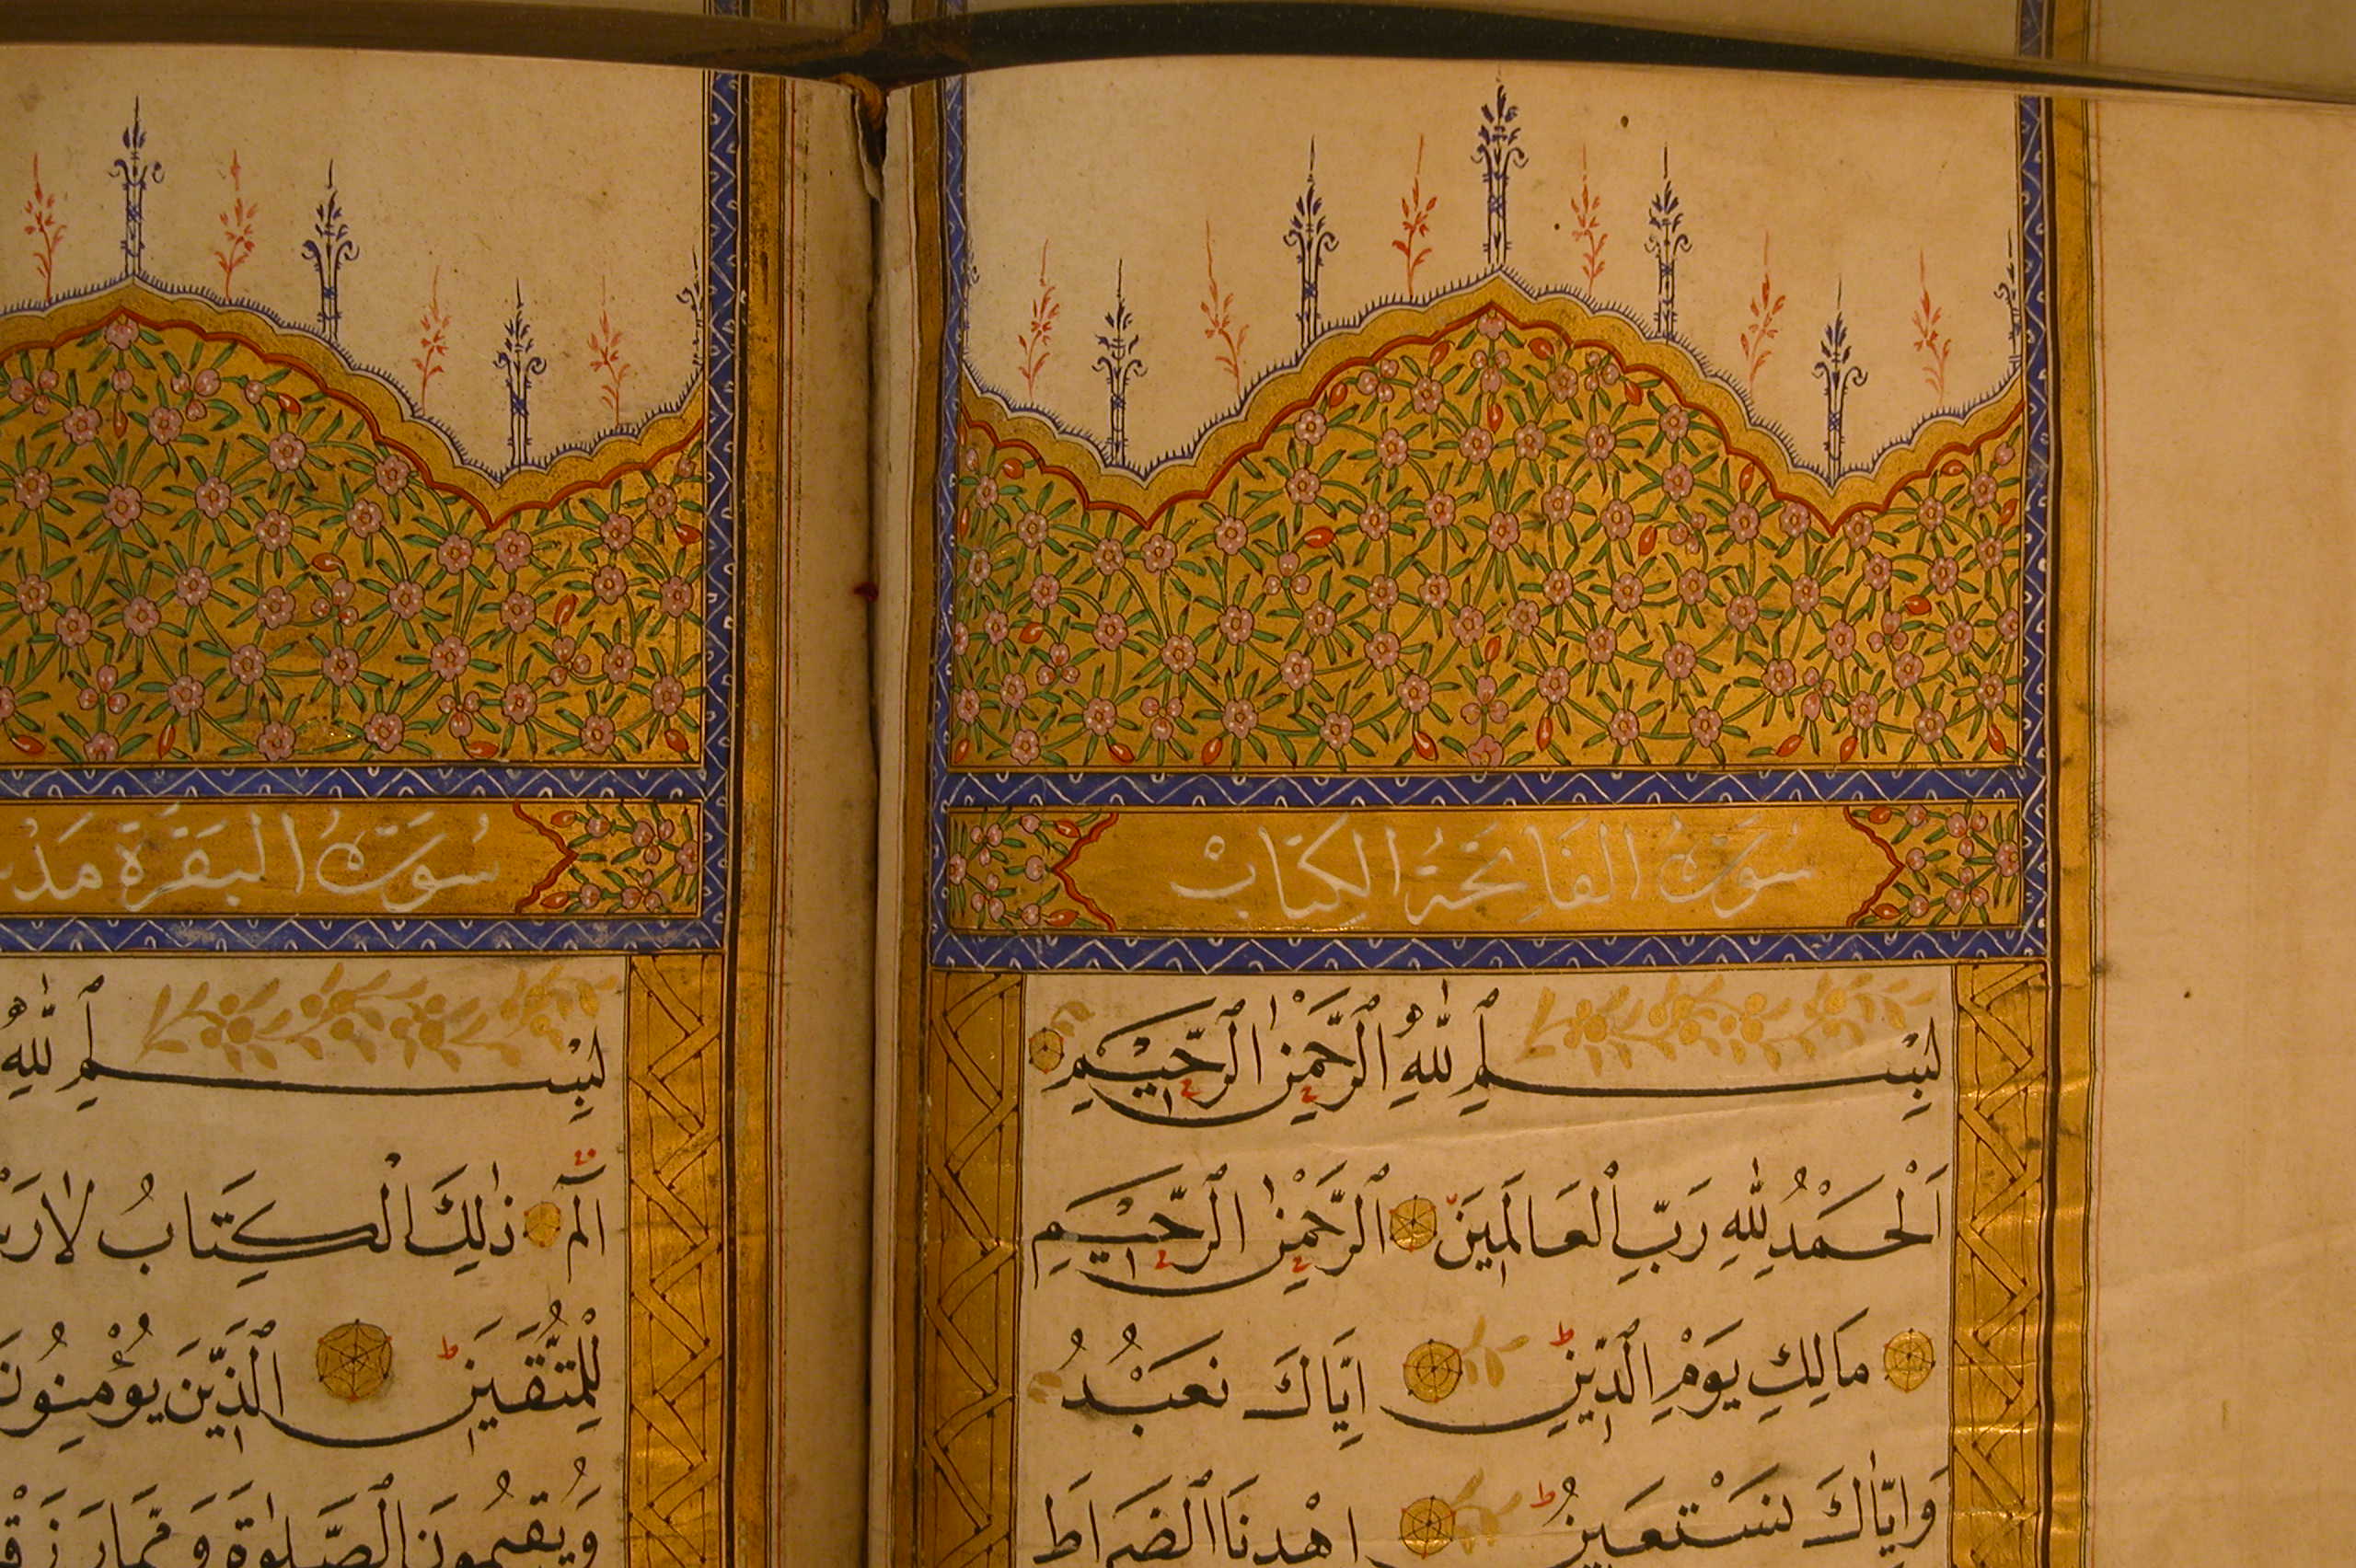 سُورَةُ الفَاتِحَةُ الكِتَابْ
بِسْمِ ٱللّٰهِ ٱلرَّحْمٰنِ ٱلرَّحِيْمِ
اَلْحَمْدُ لِلّٰهِ رَبِّ الْعَالَمِيَنَ ٱلرَّحْمٰنِ ٱلرَّحِيْمِ
مَالِكِ يَوْمِ ٱلدِّينِ اِيَّاكَ نَعْبُدُ
وَاِيَّاكَ نَسْتَعِينُ اِهْدِنَا ٱلصِّرَاطَ
سُورَةُ البَقَرَة
بِسْمِ ٱللّٰهِ
الٓمٓ ذٰلِكَ الْكِتَابُ لَا
لِلْمُتَّقِيَنَ ٱلَّذِيَنَ يُؤْمِنُونَ
وَيُقِيمُونَ ٱلصَّلٰوةَ وَمِمَّا